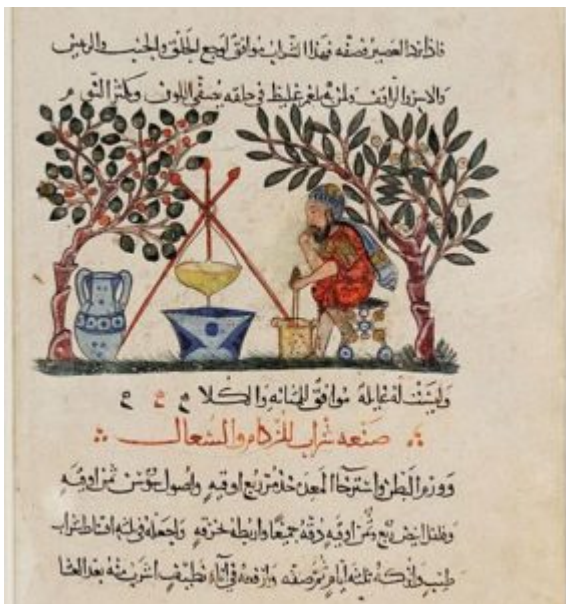 فاذا برد العصير فصفه فهذا الشراب موافق لوجع الحلق والجنب
ولمن به بلغم غليظ في حلقه يصفي اللون ويكثر النوم
وليست له غايله موافق للمثانه والكلا
صنعه شراب للزكام والسعال
وورم البطن واسترخا المعده خذ مر ربع اوقيه واصول سوسن ثمن اوقيه
وفلفل ابيض ربع وثمن اوقيه دقه جميعا واربطه بخرقه واجعله في ثلثه اقساط شراب
طيب واتركه ثلثه ايام ثم صفه وارفعه في اناء نظيف اشرب منه بعد العشا